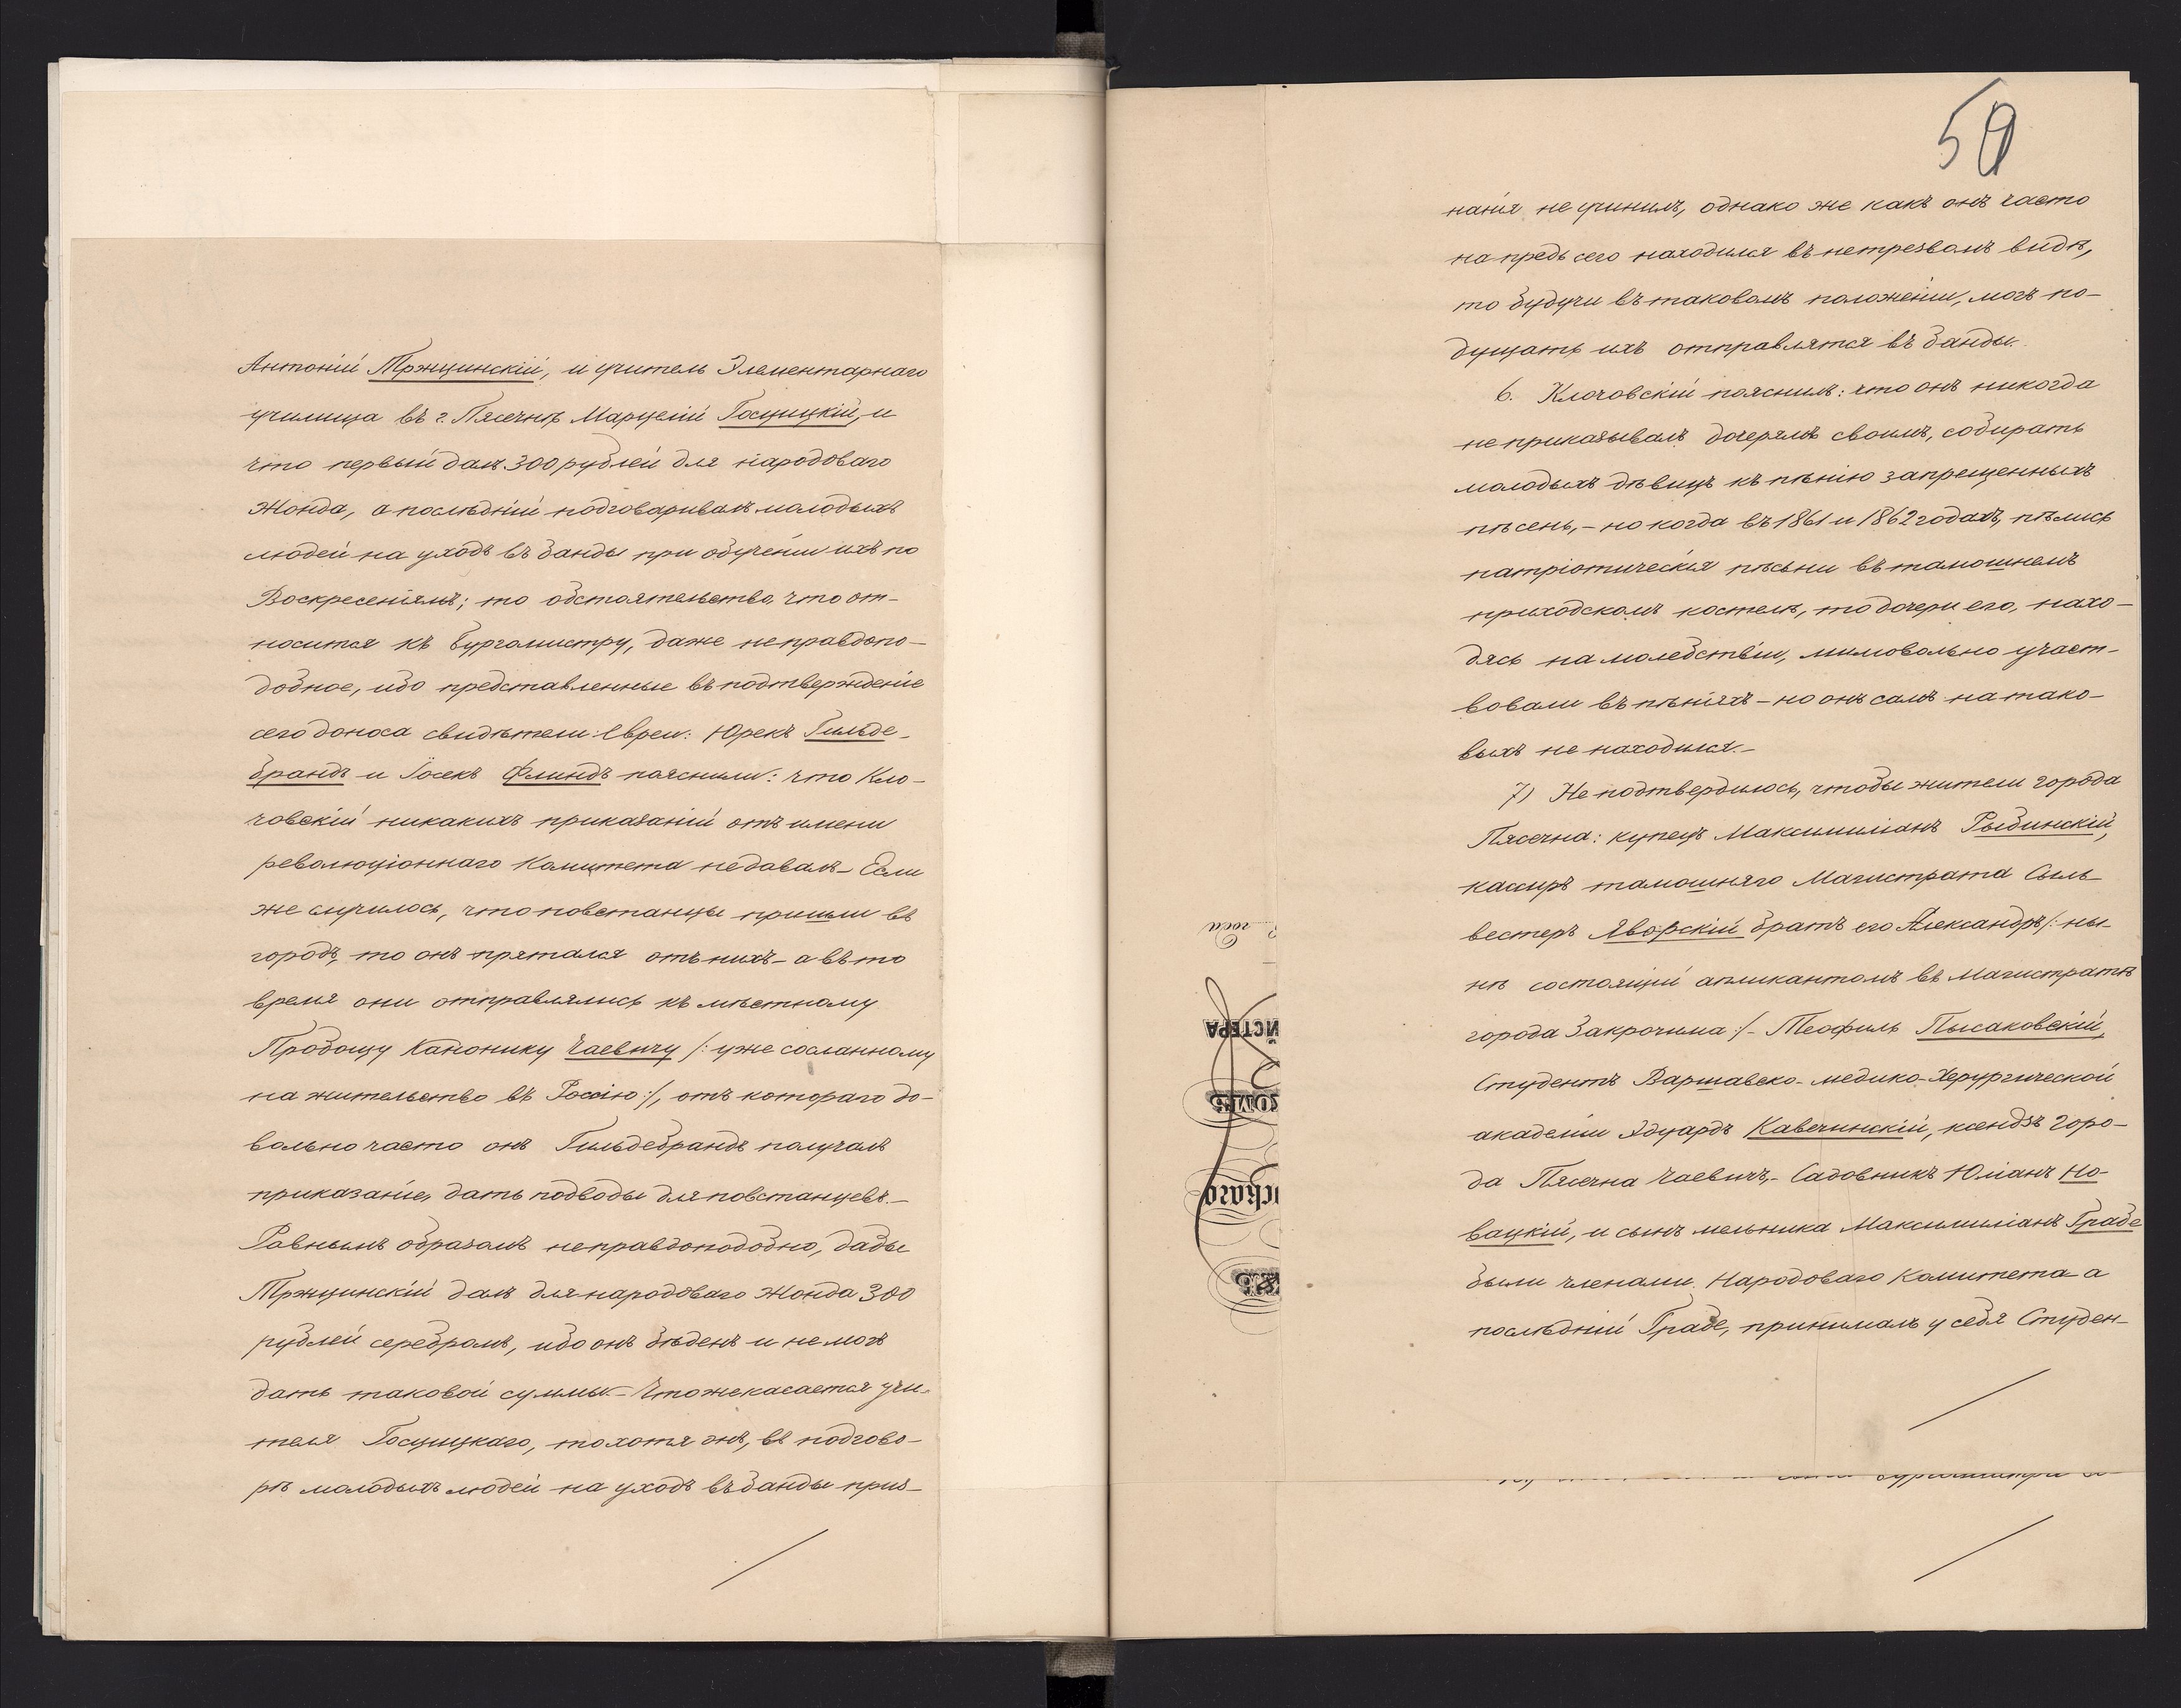 Антоній Тржцинскій, и учитель Элементарнаго
училища въ г. Пясечнѣ Марцелій Госцицкій, и
что первый далъ 300 рублей для народоваго
Жонда, а послѣдній подговаривалъ молодыхъ
людей на уходъ въ банды при обученіи ихъ по
Воскресеніямъ; то обстоятельство, что от-
носится къ Бургомистру, даже неправдопо-
добное, ибо представленные въ подтвержденіе
сего доноса свидѣтели: Евреи: Юрекъ Гильде-
брандъ и Іосекъ Флиндъ пояснили: что Кло-
човскій никакихъ приказаній отъ имени
революціоннаго Комитета не давалъ – Если
же случилось, что повстанцы пришли въ
городъ, то онъ прятался отъ нихъ – а въ то
время они отправлялись къ мѣстному
Пробощу Канонику Чаевичу /: уже сосланному
на жительство въ Россію :/, отъ котораго до-
вольно часто онъ Гильдебрандъ получалъ
приказаніе, дать подводы для повстанцевъ. –
Равнымъ образомъ неправдоподобно, дабы
Тржцинскій далъ для народоваго Жонда 300
рублей серебромъ, ибо онъ бѣденъ и не могъ
дать таковой суммы – Что же касается учи-
теля Госцицкаго, то хотя онъ, въ подгово-
рѣ молодыхъ людей на уходъ въ банды приз-
50
нанія не учинилъ, однако же какъ онъ часто
на предь сего находился въ нетрезвомъ видѣ,
то будучи въ таковомъ положеніи, могъ по-
дущать ихъ отправлятся въ банды.
6. Клочовскій пояснилъ: что онъ никогда
не приказывалъ дочерямъ своимъ, собирать
молодыхъ дѣвицъ къ пѣнію запрещенныхъ
пѣсень, – но когда въ 1861 и 1862 годахъ, пѣлись
патріотическія пѣсьни въ тамошнемъ
приходскомъ костелѣ, то дочери его, нахо-
дясь на молебствіи, мимовольно участ-
вовали въ пѣніяхъ – но онъ самъ на тако-
выхъ не находился. –
7) Не подтвердилось, чтобы жители города
Пясечна: купецъ Максимиліанъ Рыбинскій,
кассиръ тамошняго Магистрата Силь-
вестеръ Яворскій братъ его Александръ /: ны-
нѣ состоящій апликантомъ въ Магистратѣ
города Закрочима :/ – Теофиль Пысаковскій,
Студентъ Варшавско-медико-Херургической
академіи Эдуардъ Кавечинскій, ксендзъ горо-
да Пясечна Чаевичъ, – Садовникъ Юліанъ Но-
вацкій, и сынъ мельника Максимиліанъ Грабе
были членами Народоваго Комитета – а
послѣдній Грабе, принималъ у себя Студен-
года
ЙСТЕРА
скаго